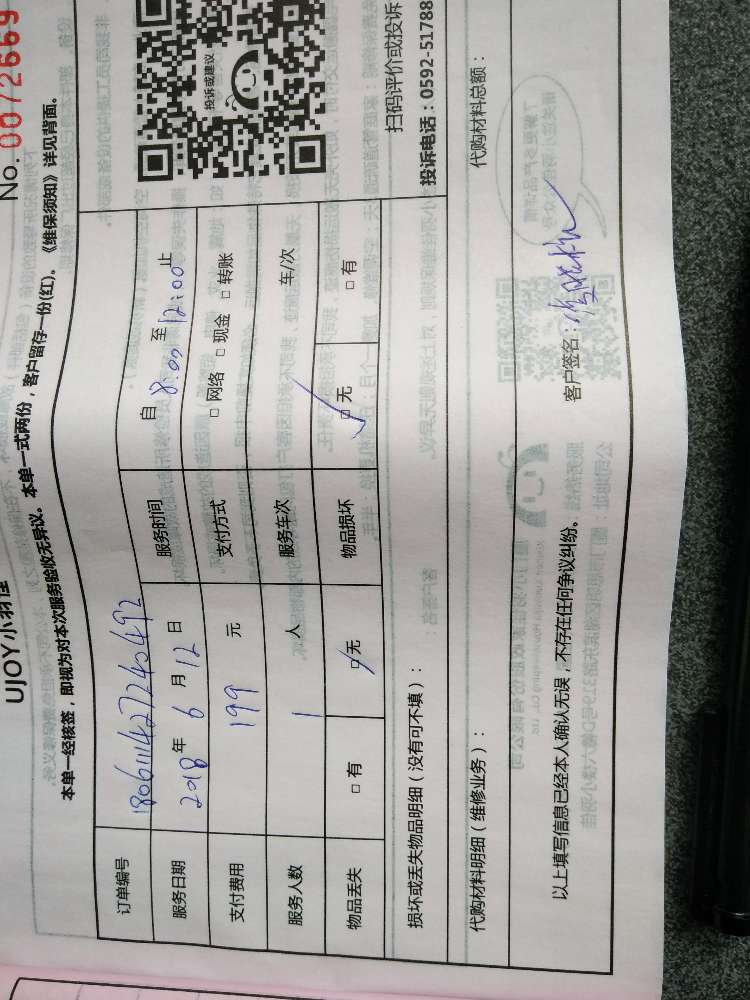 No. 0072669
UJOY小羽佳
本单一经核签，即视为对本次服务验收无异议。本单一式两份，客户留存一份(红)。《维保须知》详见背面。
订单编号 180611427240492
服务日期 2018年6月12日 服务时间 自 8:00 至 12:00 止
支付费用 199 元 支付方式 □ 网络 □ 现金 □ 转账
服务人数 1 人 服务车次 车/次
物品丢失 □ 有 □ 无 物品损坏 □ 无 □ 有
投诉或建议
扫码评价或投诉
投诉电话：0592-51788
损坏或丢失物品明细（没有可不填）：
代购材料明细（维修业务）： 代购材料总额：
以上填写信息已经本人确认无误，不存在任何争议纠纷。 客户签名：